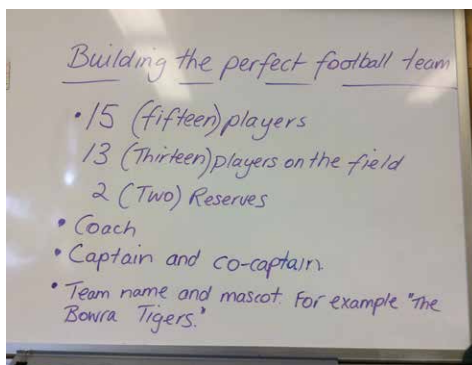 Building the perfect football team
• 15 (fifteen) players
13 (Thirteen) players on the field
2 (Two) Reserves
• Coach
• Captain and co-captain
• Team name and mascot. For example "The
Bowra Tigers."